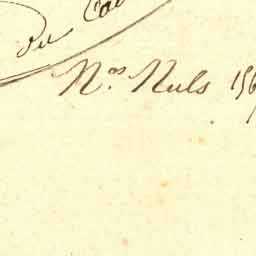 du Ca
Nos Nuls 156